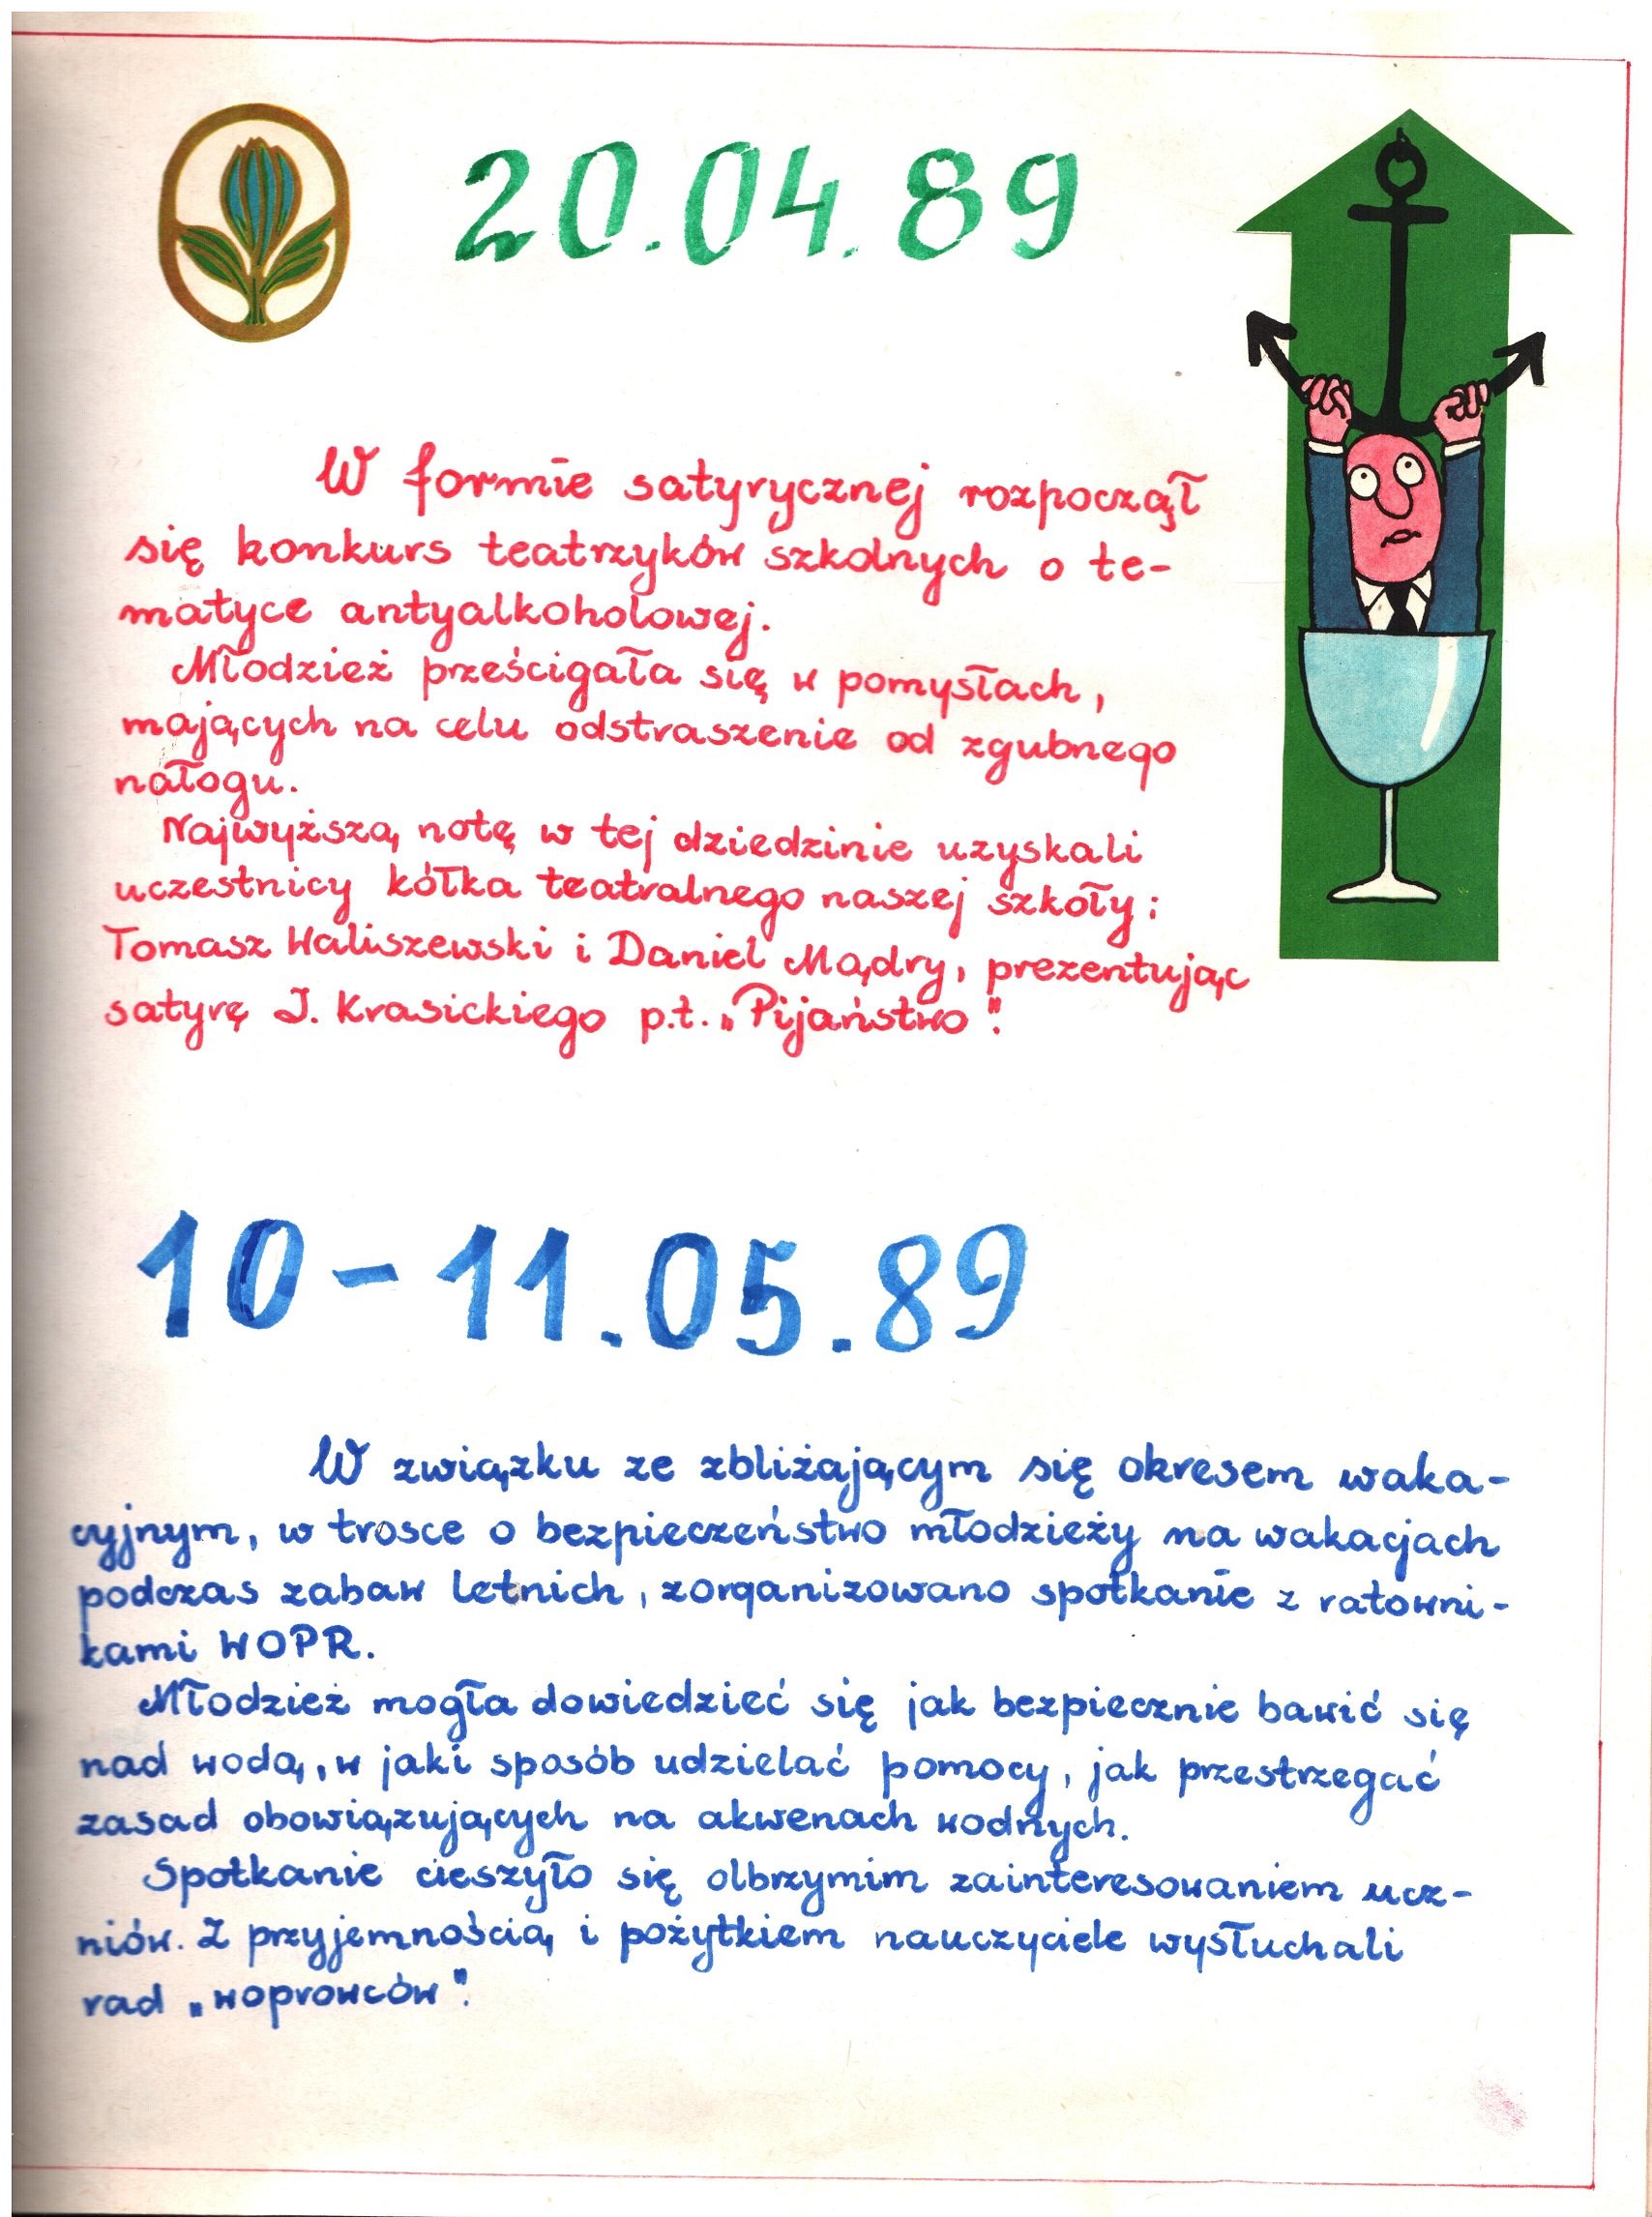 20.04.89
W formie satyrycznej rozpoczął
się konkurs teatrzyków szkolnych o te-
matyce antyalkoholowej.
Młodzież prześcigała się w pomysłach,
mających na celu odstraszenie od zgubnego
nałogu.
Najwyższą notę w tej dziedzinie uzyskali
uczestnicy kółka teatralnego naszej szkoły:
Tomasz Waliszewski i Daniel Mądry, prezentując
satyrę J. Krasickiego p.t. „Pijaństwo".
10-11.05.89
W związku ze zbliżającym się okresem waka-
cyjnym, w trosce o bezpieczeństwo młodzieży na wakacjach
podczas zabaw letnich, zorganizowano spotkanie z ratowni-
kami WOPR.
Młodzież mogła dowiedzieć się jak bezpiecznie bawić się
nad wodą, w jaki sposób udzielać pomocy, jak przestrzegać
zasad obowiązujących na akwenach wodnych.
Spotkanie cieszyło się olbrzymim zainteresowaniem ucz-
niów. Z przyjemnością i pożytkiem nauczyciele wysłuchali
rad „woprowców".